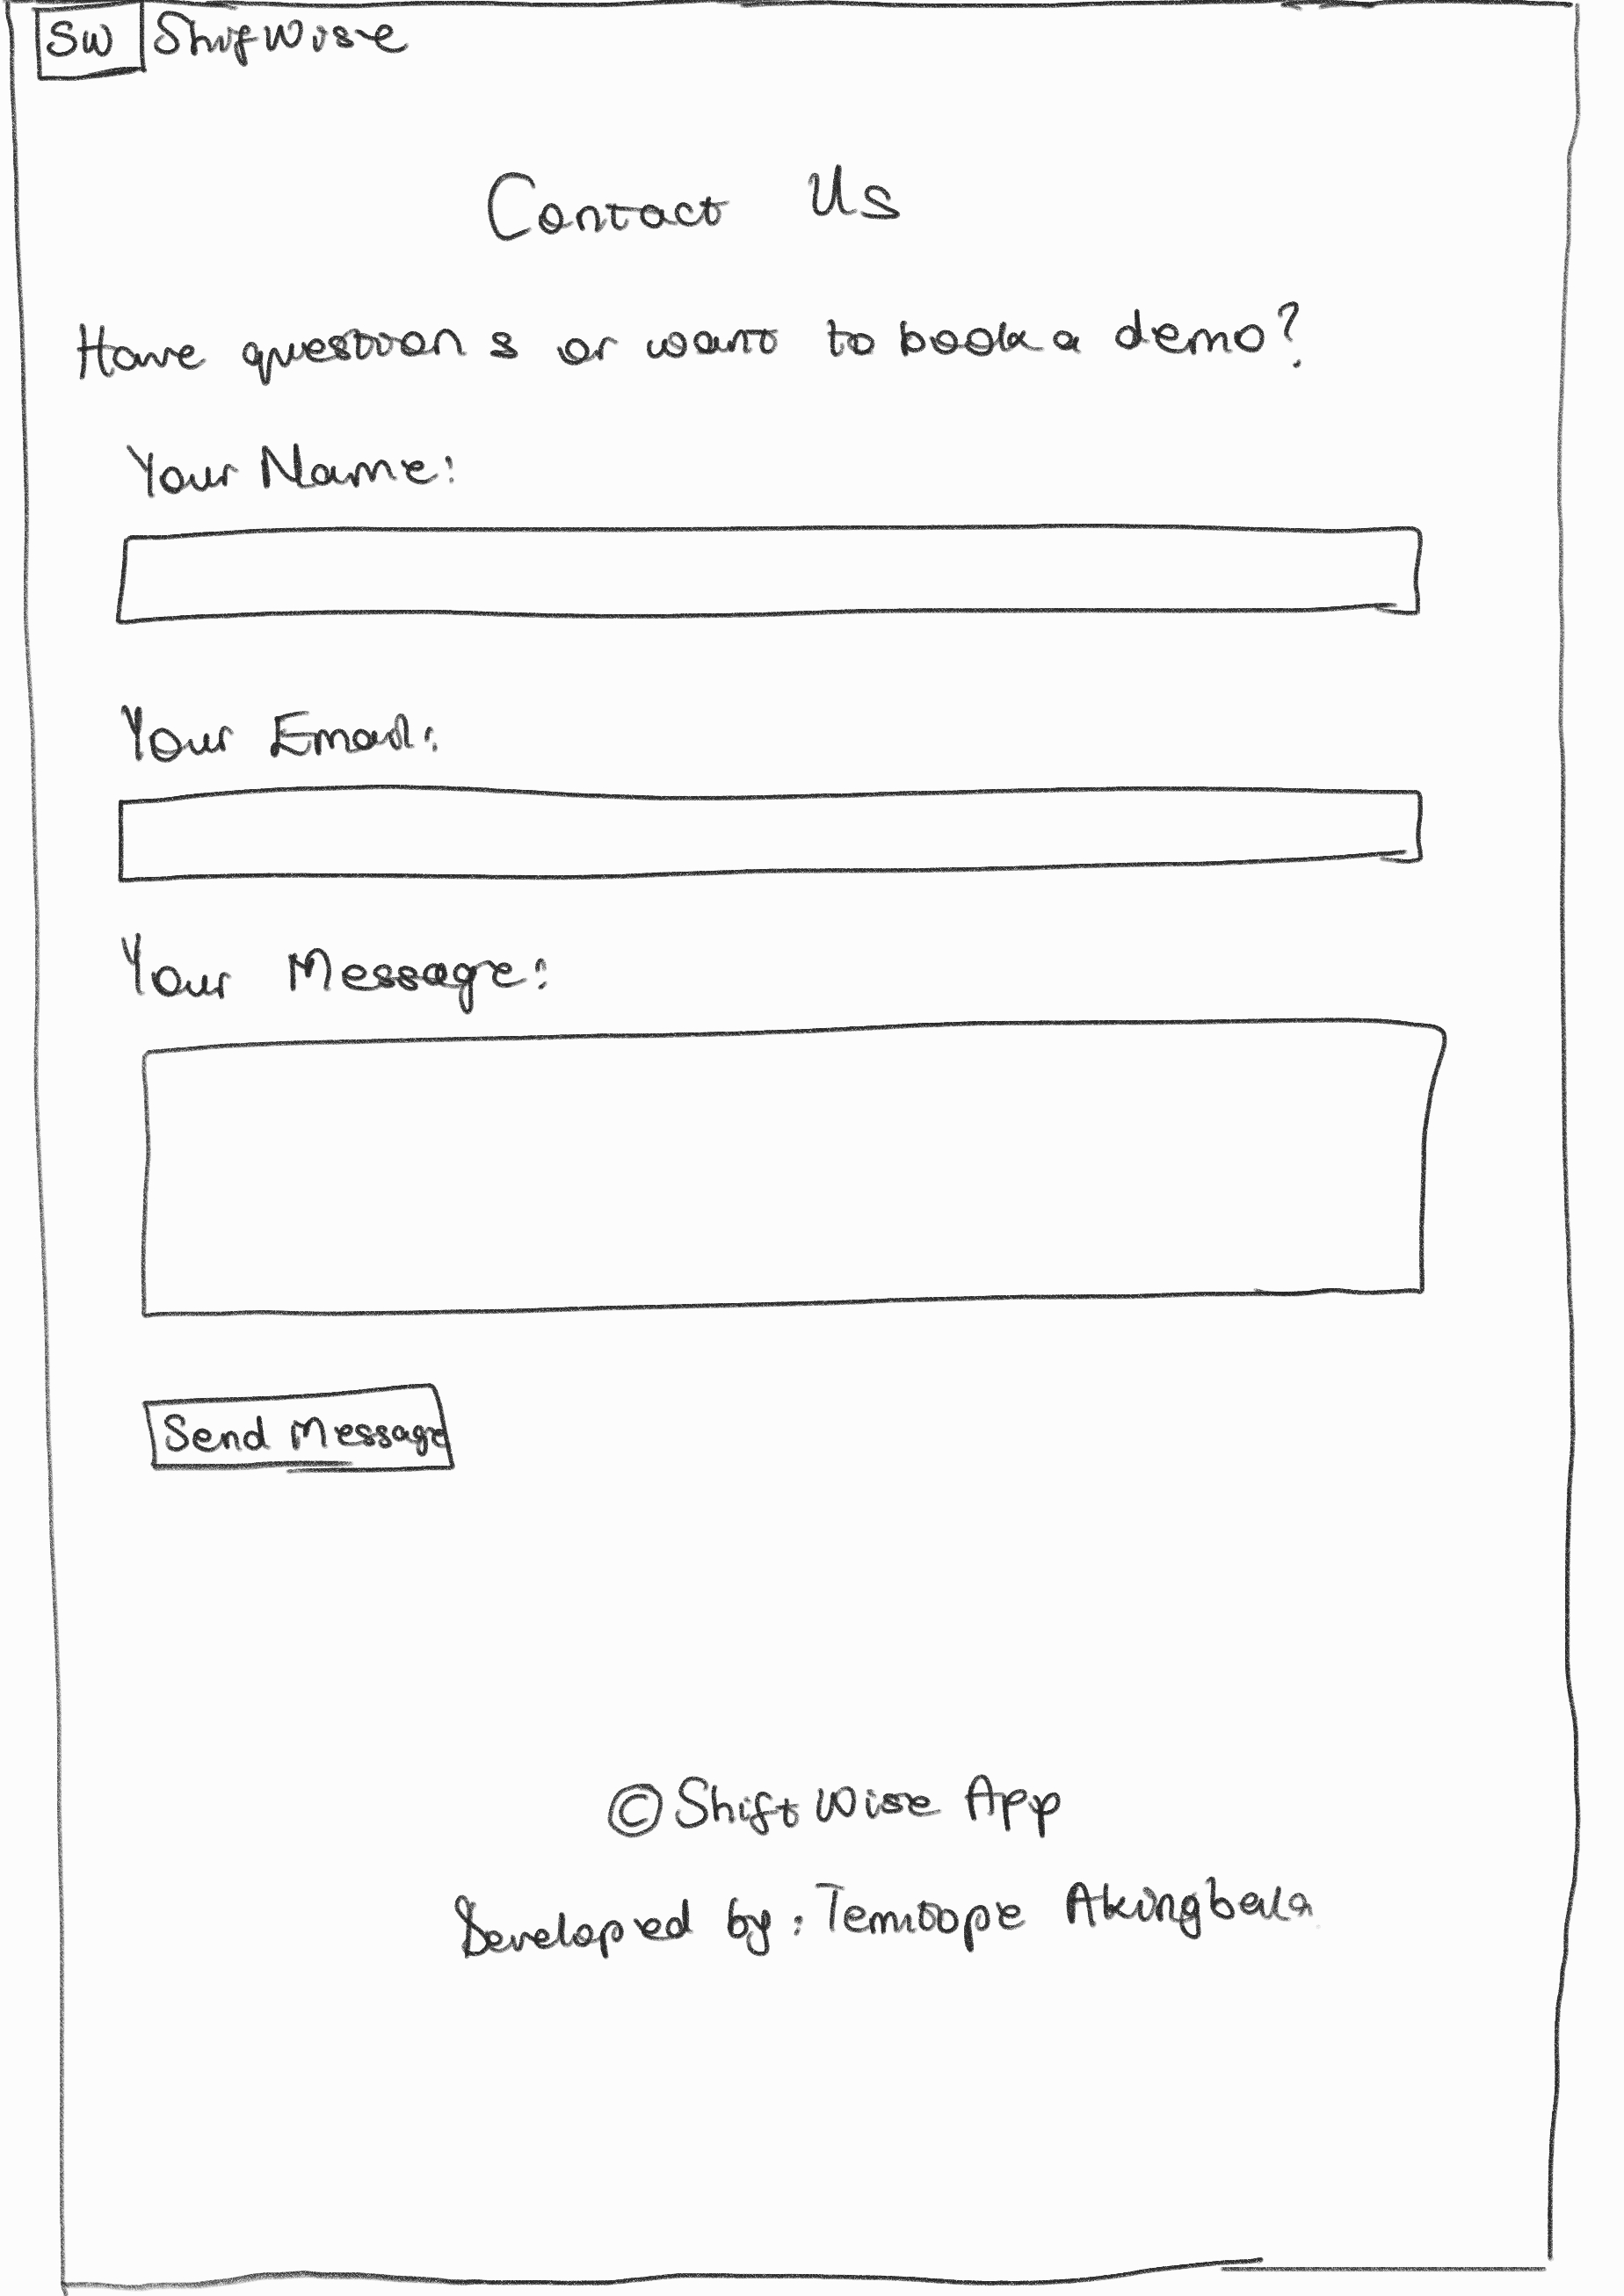 SW ShifWise
Contact Us
Have questions or want to book a demo?
Your Name:
Your Email:
Your Message:
Send Message
© ShiftWise App
Developed by: Temitope Akingbala